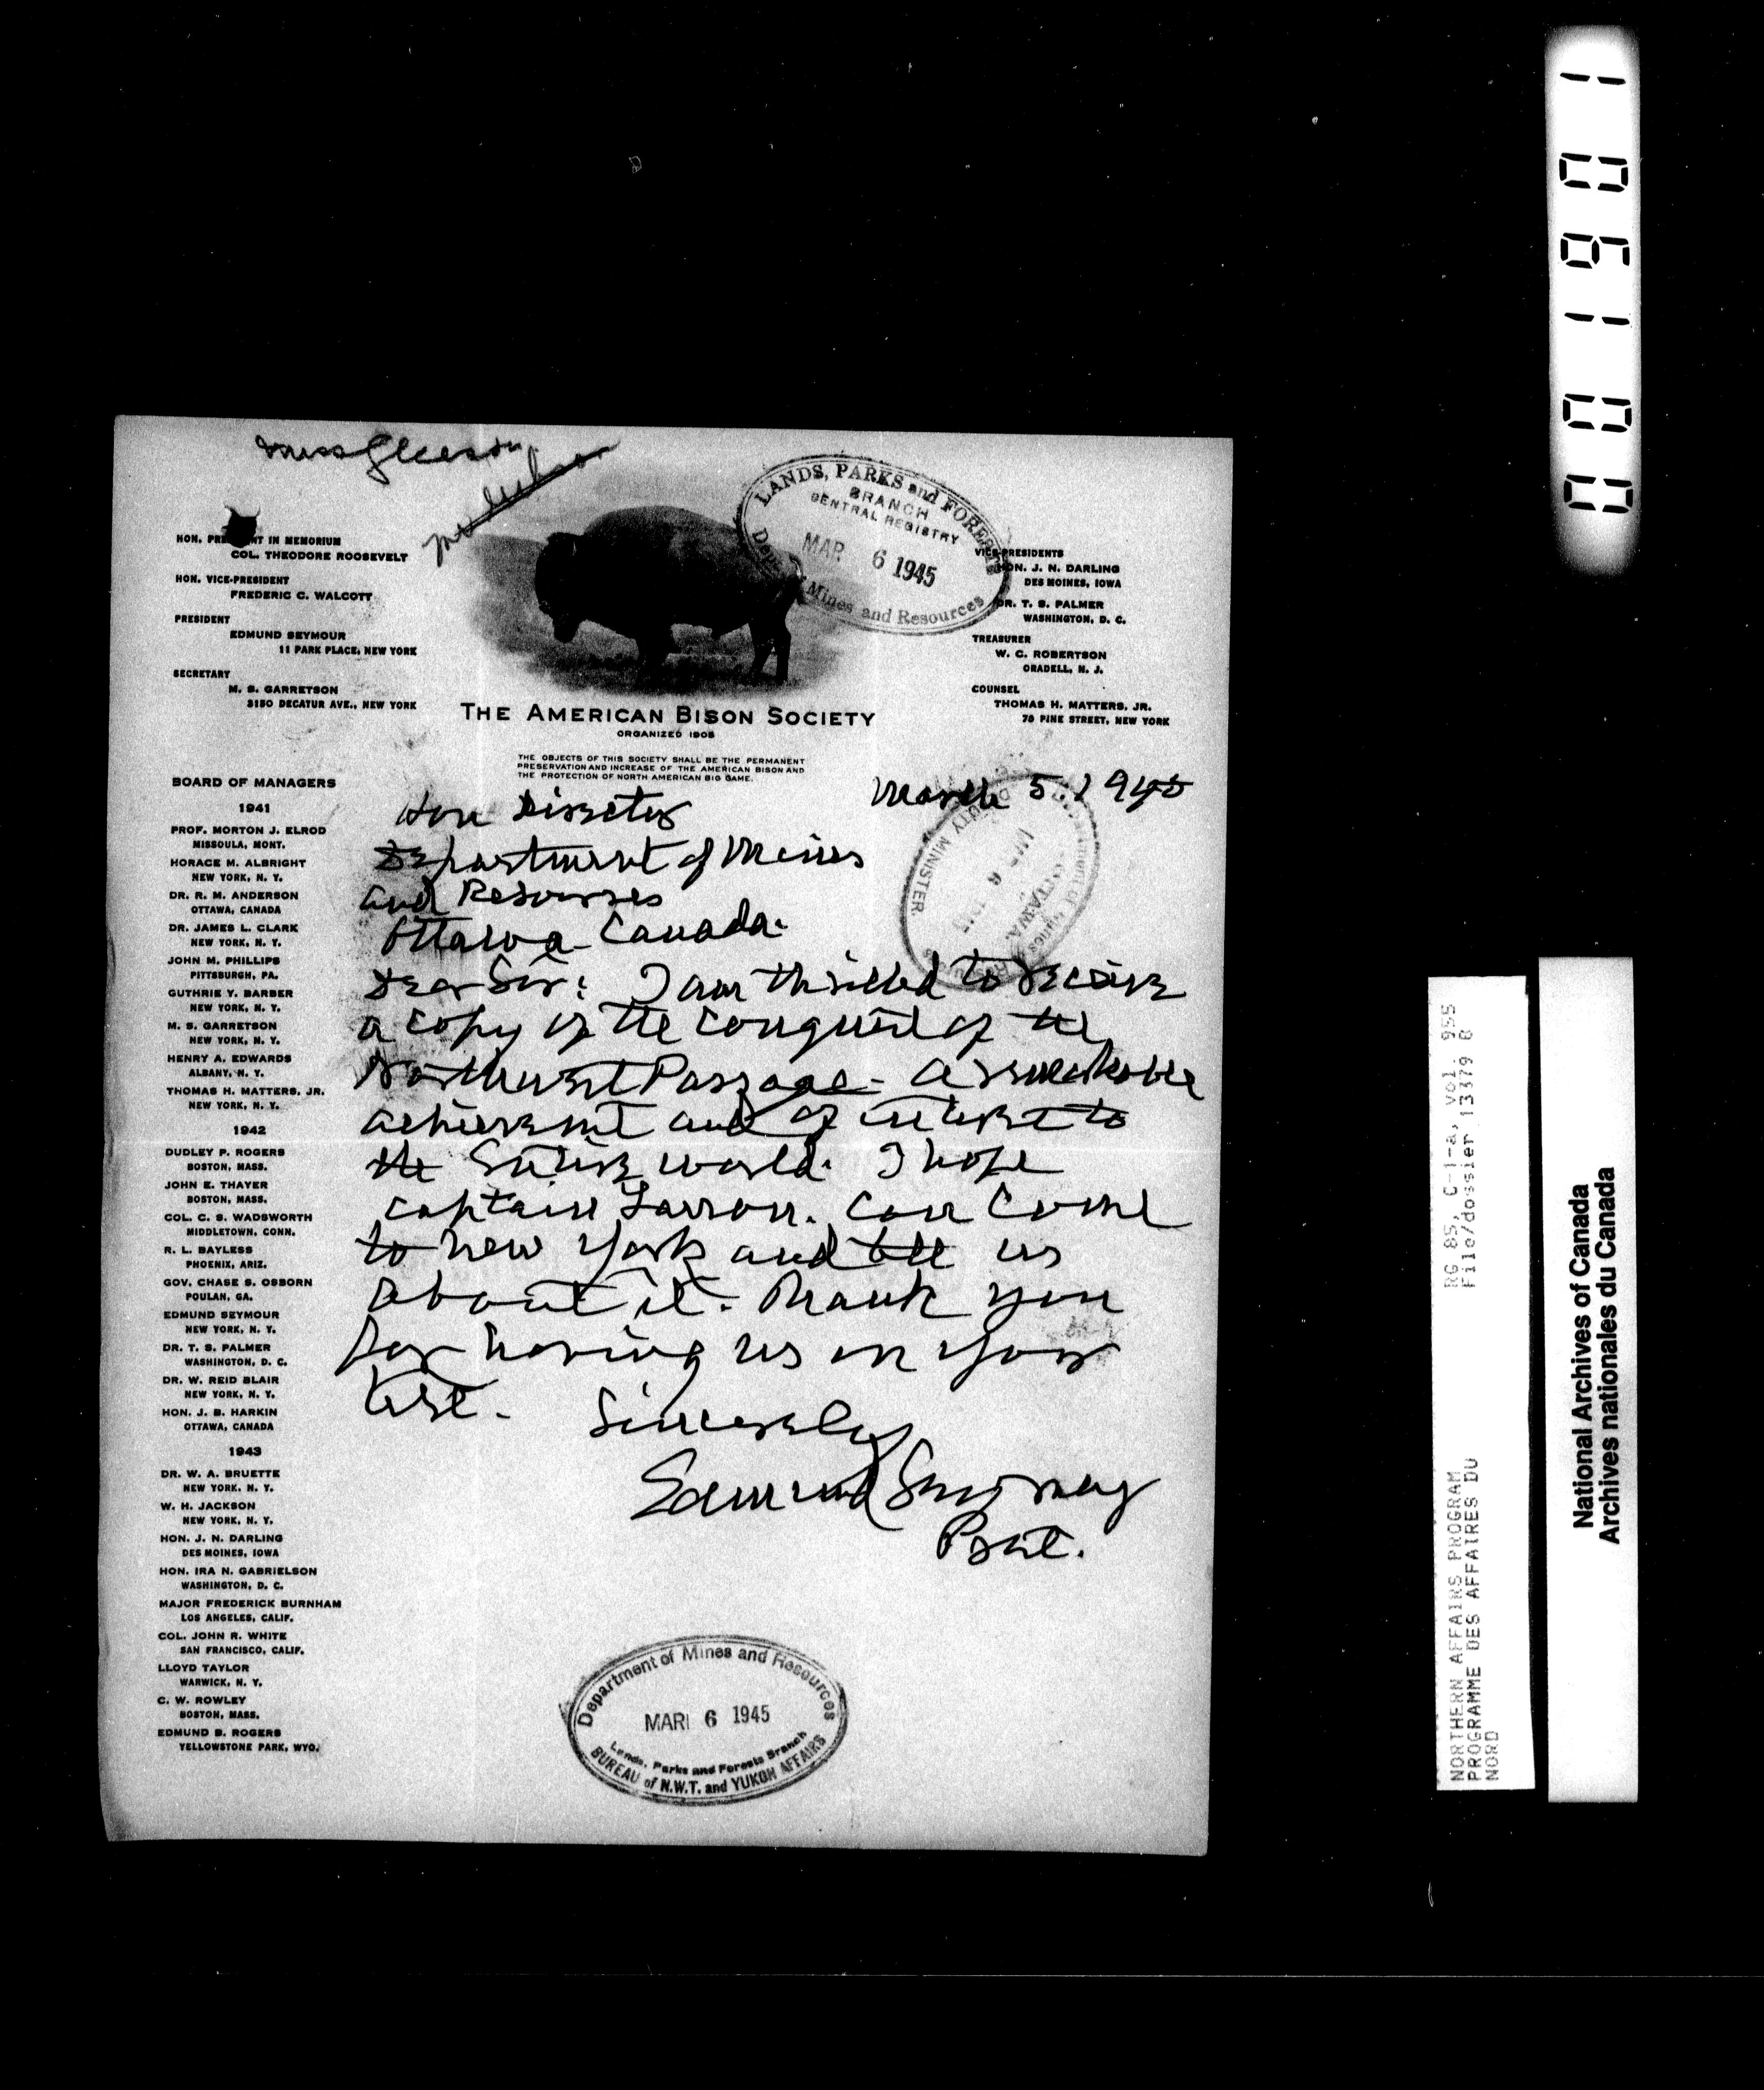 Miss Gleeson
HON. PRE    NT IN MEMORIUM
COL. THEODORE ROOSEVELT
HON. VICE-PRESIDENT
FREDERIC C. WALCOTT
PRESIDENT
EDMUND SEYMOUR
11 PARK PLACE, NEW YORK
SECRETARY
M. S. GARRETSON
3150 DECATUR AVE., NEW YORK
LANDS, PARKS and FORESTS
BRANCH
CENTRAL REGISTRY
MAR 6 1945
Dept. of Mines and Resources
VICE-PRESIDENTS
HON. J. N. DARLING
DES MOINES, IOWA
DR. T. S. PALMER
WASHINGTON, D. C.
TREASURER
W. C. ROBERTSON
ORADELL, N. J.
COUNSEL
THOMAS H. MATTERS, JR.
70 PINE STREET, NEW YORK
THE AMERICAN BISON SOCIETY
ORGANIZED 1905
THE OBJECTS OF THIS SOCIETY SHALL BE THE PERMANENT
PRESERVATION AND INCREASE OF THE AMERICAN BISON AND
THE PROTECTION OF NORTH AMERICAN BIG GAME.
BOARD OF MANAGERS
1941
PROF. MORTON J. ELROD
MISSOULA, MONT.
HORACE M. ALBRIGHT
NEW YORK, N. Y.
DR. R. M. ANDERSON
OTTAWA, CANADA
DR. JAMES L. CLARK
NEW YORK, N. Y.
JOHN M. PHILLIPS
PITTSBURGH, PA.
GUTHRIE Y. BARBER
NEW YORK, N. Y.
M. S. GARRETSON
NEW YORK, N. Y.
HENRY A. EDWARDS
ALBANY, N. Y.
THOMAS H. MATTERS, JR.
NEW YORK, N. Y.
1942
DUDLEY P. ROGERS
BOSTON, MASS.
JOHN E. THAYER
BOSTON, MASS.
COL. C. S. WADSWORTH
MIDDLETOWN, CONN.
R. L. BAYLESS
PHOENIX, ARIZ.
GOV. CHASE S. OSBORN
POULAN, GA.
EDMUND SEYMOUR
NEW YORK, N. Y.
DR. T. S. PALMER
WASHINGTON, D. C.
DR. W. REID BLAIR
NEW YORK, N. Y.
HON. J. B. HARKIN
OTTAWA, CANADA
1943
DR. W. A. BRUETTE
NEW YORK, N. Y.
W. H. JACKSON
NEW YORK, N. Y.
HON. J. N. DARLING
DES MOINES, IOWA
HON. IRA N. GABRIELSON
WASHINGTON, D. C.
MAJOR FREDERICK BURNHAM
LOS ANGELES, CALIF.
COL. JOHN R. WHITE
SAN FRANCISCO, CALIF.
LLOYD TAYLOR
WARWICK, N. Y.
C. W. ROWLEY
BOSTON, MASS.
EDMUND B. ROGERS
YELLOWSTONE PARK, WYO.
March 5. 1945
Hon Director
Department of Mines
and Resources
Ottawa Canada.
Dear Sir: I am thrilled to receive
a copy of the conquest of the
Northwest Passage - a remarkable
achievement and of interest to
the entire world. I hope
Captain Larson. can come
to New York and tell us
about it. Thank you
for having us on your
list. Sincerely
Edmund Seymour
Pset.
DEPUTY MINISTER.
OTTAWA.
Department of Mines and Resources
MAR 6 1945
Lands, Parks and Forests Branch
BUREAU of N.W.T. and YUKON AFFAIRS
RG 85, C-1-a, vol. 955
File/dossier 13379 B
NORTHERN AFFAIRS PROGRAM
PROGRAMME DES AFFAIRES DU
NORD
National Archives of Canada
Archives nationales du Canada